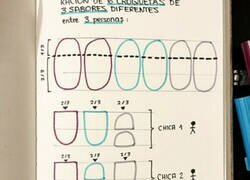 RACIÓN DE 6 CROQUETAS DE
3 SABORES DIFERENTES
entre 3 personas:
1/3
2/3
2/3 2/3 2/3
CHICA 1
2/3 2/3 2/3
CHICA 2